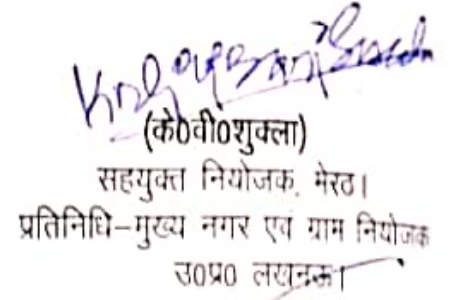 (के0वी0शुक्ला)
सहयुक्त नियोजक, मेरठ।
प्रतिनिधि–मुख्य नगर एवं ग्राम नियोजक
उ0प्र0 लखनऊ।